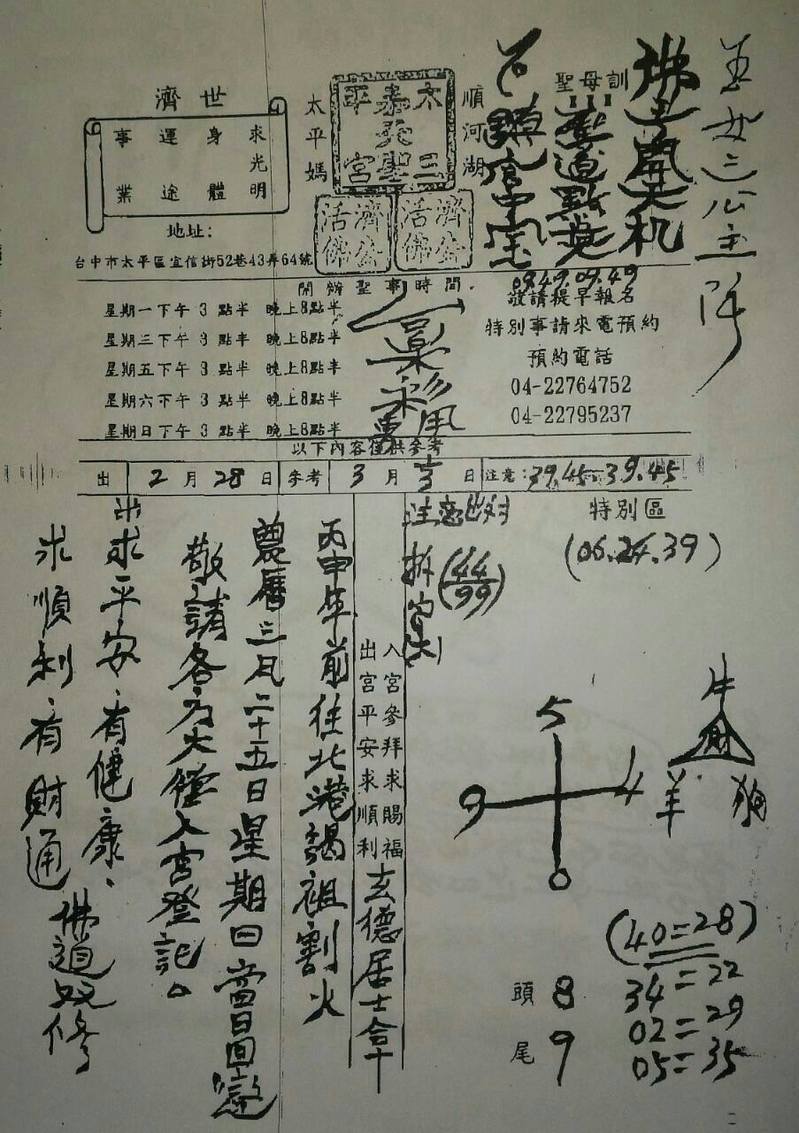 玉女三公主降
佛手開天机
聖母訓
順河湖
太平媽
太三
泰天聖
平宮
濟公活佛
濟公活佛
濟世
求光明
身體
運途
事業
地址：
台中市太平區宜信街52巷43弄64號
開辦聖事時間
09.49.09.49
星期一下午3點半 晚上8點半
星期三下午3點半 晚上8點半
星期五下午3點半 晚上8點半
星期六下午3點半 晚上8點半
星期日下午3點半 晚上8點半
敬請提早報名
特別事請來電預約
預約電話
04-22764752
04-22795237
以下內容僅供參考
出 2月28日 參考 3月 日 注意：39.45=39.45
特別區
(06.24.39)
(44/99)
5
9 4
0
牛
財
羊 狗
(40=28)
34=22
02=29
05=35
頭 8
尾 9
入宮參拜求賜福
出宮平安求順利
玄德居士拿
丙申年前往北港謁祖割火
農曆三月二十五日星期日當日回鑾
敬請各方大德入宮登記。
求平安、有健康、
求順利、有財通
佛道双修